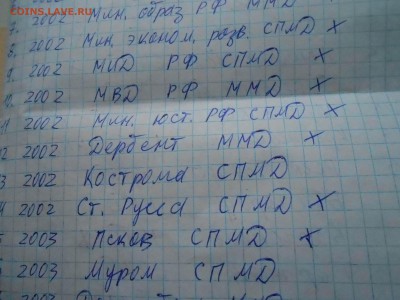 COINS.LAVE.RU
2002 Мин. образ РФ ММД
8. 2002 Мин. эконом. разв. СПМД X
9. 2002 МИД РФ СПМД X
10. 2002 МВД РФ ММД X
11 2002 Мин. юст. РФ СПМД X
12 2002 Дербент ММД X
3 2002 Кострома СПМД
4 2002 Ст. Русса СПМД X
5 2003 Псков СПМД X
2003 Муром СПМД